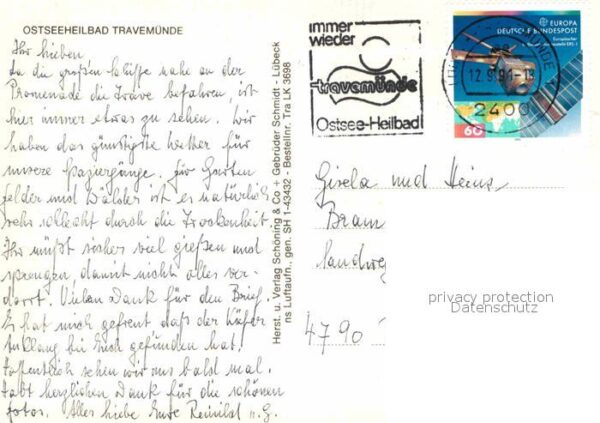 OSTSEEHEILBAD TRAVEMÜNDE
Ihr lieben
Da die großen Schiffe nahe an der
Promenade die Trave befahren, ist
hier immer etwas zu sehen. Wir
haben das günstigste Wetter für
unsere Spaziergänge. Für Garten
felder und Wälder ist es natürlich
sehr schlecht durch die Trockenheit.
Ihr müßt sicher viel gießen und
sprengen damit nicht alles ver-
dorrt. Vielen Dank für den Brief.
Es hat mich gefreut daß der Käfer
Anklang bei Euch gefunden hat.
Hoffentlich sehen wir uns bald mal.
Habt herzlichen Dank für die schönen
Fotos. Alles liebe Eure u. G.
Herst. u. Verlag Schöning & Co + Gebrüder Schmidt - Lübeck
ns Luftaufn., gen. SH 1-43432 - Bestellnr. Tra LK 3698
immer
wieder
travemünde
Ostsee-Heilbad
EUROPA
DEUTSCHE BUNDESPOST
Europäischer
ERS-1
12.9.91-18
2400
60
Gisela und Heinz
Bram
Landweg
4790
privacy protection
Datenschutz